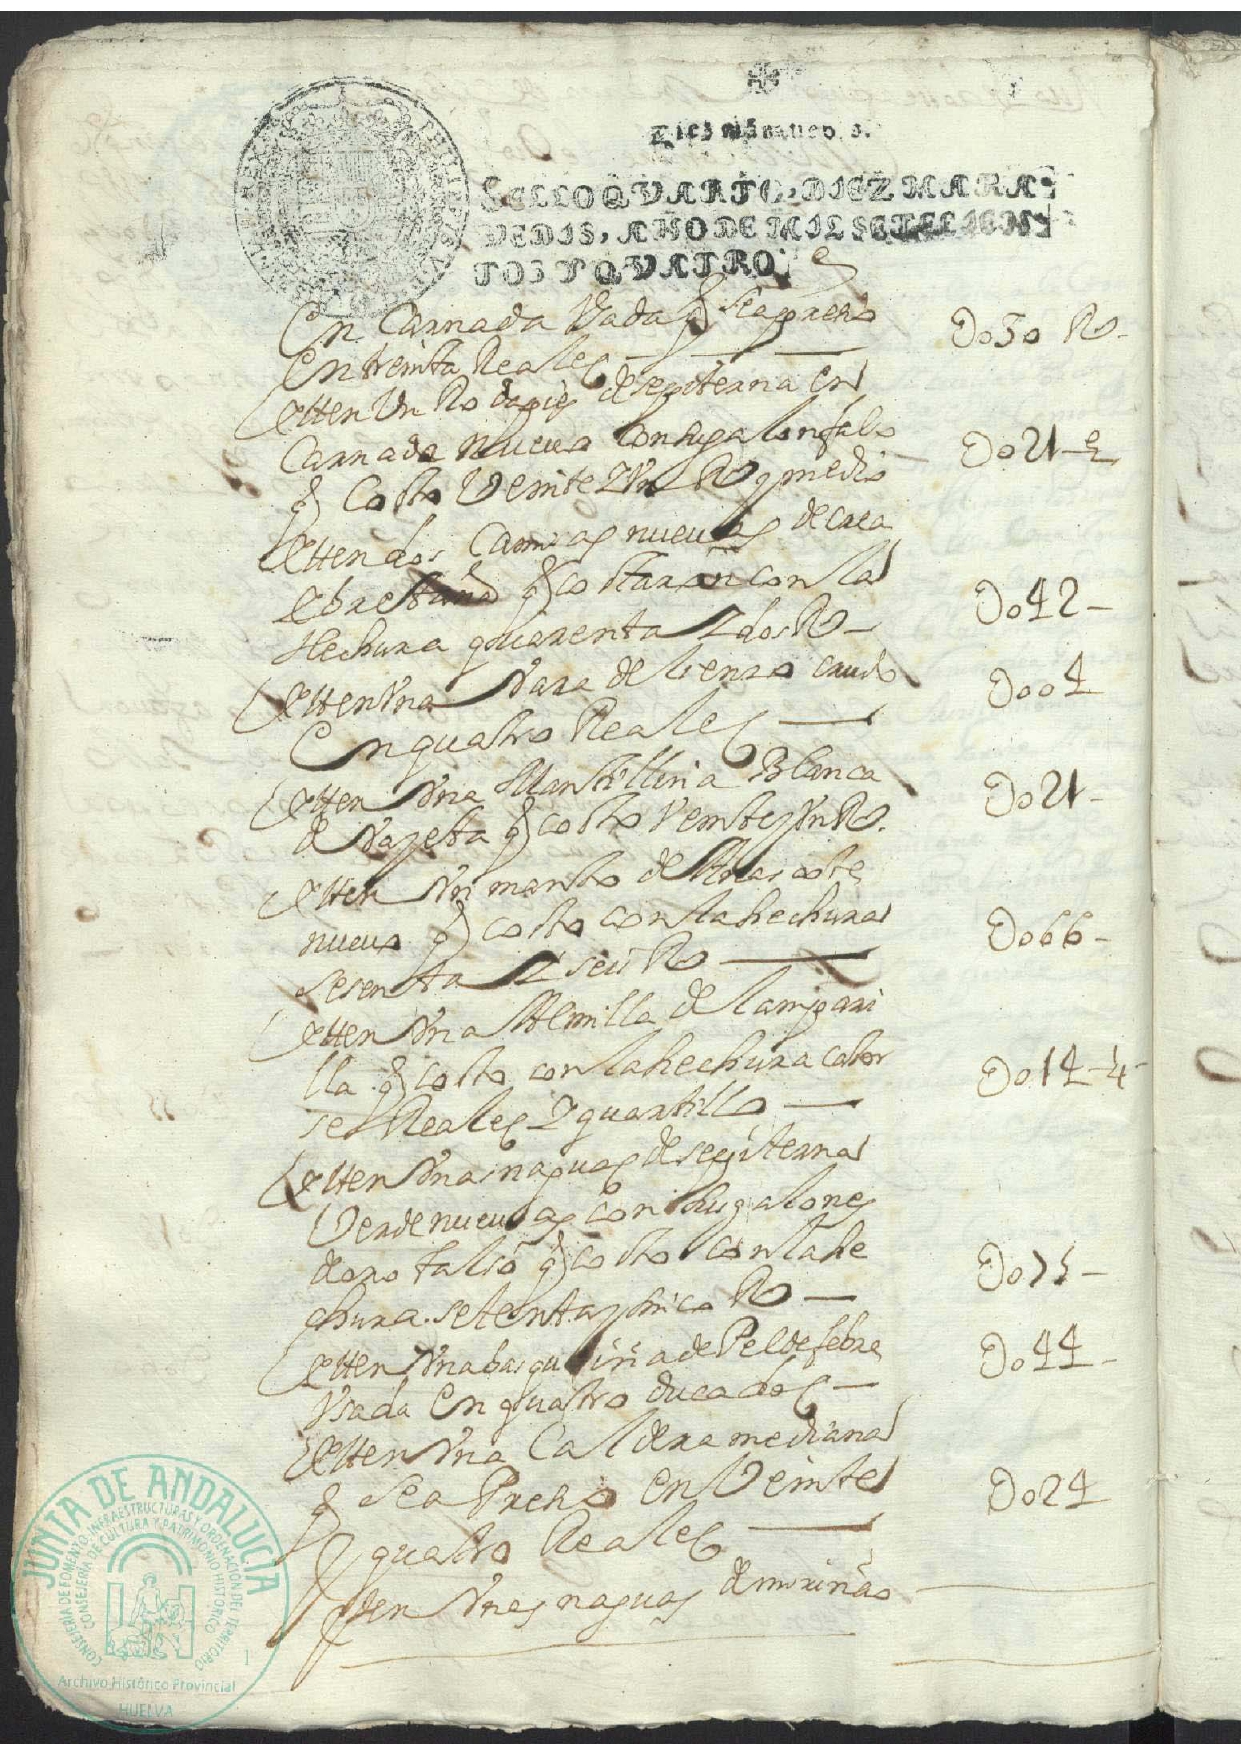 Diez maravedis.
SELLO QVARTO, DIEZ MARA
VEDIS, AÑO DE MIL SETECIEN
TOS Y QVATRO.
En Carnada Vsada q se aprecio Do30 Rs
En treinta Reales
Ytten Un Rodapies de sepiterna En
Carnada nueva Con su galon falso Do21-e
q Costo Veinte Y Vn Rs y medio
Ytten dos Camisas nuevas de casa
e bretaña q costaron con la Do42-
Hechura quarenta Y dos Rs
Ytten Vna Vara de lienzo crudo Doo4
En quatro Reales
Ytten Vna Mantillina Blanca Do21-
de Vayeta q costo Veinte y Vn Rs.
Ytten Vn manto de Anascote
nuevo q costo con la hechura Do66-
sesenta Y seis Rs
Ytten Vna Almilla de lampari
lla q costo con la hechura cator Do14-4-
se Reales Y quartillo
Ytten Vnas naguas de sepiterna
Verde nuevas Con sus galones
de oro falso q costo con la he Do75-
chura. setenta y sinco Rs
Ytten Vna basquiña de Pel de febre Do44-
Vsada En quatro ducados
Ytten Vna Caldera mediana
q se a Precio en Veinte Do24
Y quatro Reales
Yten Vnas naguas de
JUNTA DE ANDALUCIA
CONSEJERÍA DE FOMENTO, INFRAESTRUCTURAS Y ORDENACIÓN DEL TERRITORIO
CONSEJERÍA DE CULTURA Y PATRIMONIO HISTÓRICO
1
Archivo Histórico Provincial
HUELVA